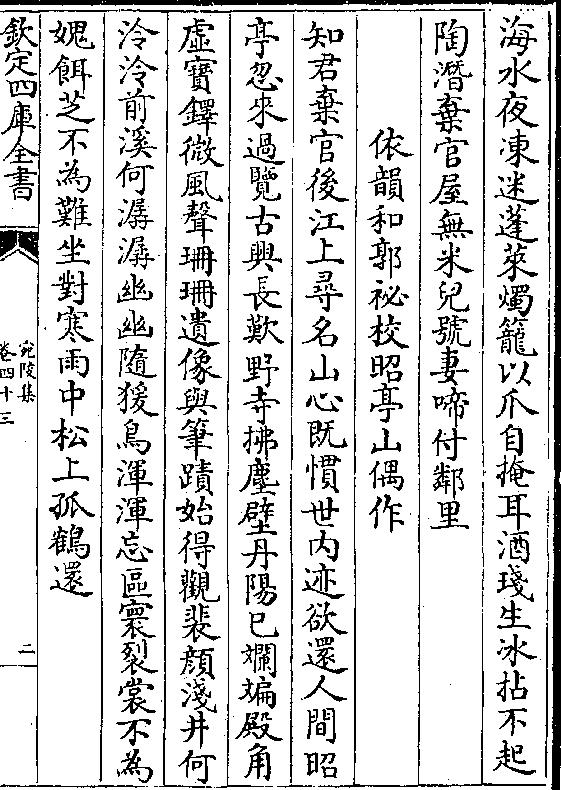 海水夜凍迷蓬萊燭籠以爪自掩耳酒琖生冰拈不起
陶潛棄官屋無米兒號妻啼付鄰里
依韻和郭祕校昭亭山偶作
知君棄官後江上尋名山心既慣世内迹欲還人間昭
亭忽來過覽古興長歎野寺拂塵壁丹陽已斕斒殿角
虛寶鐸微風聲珊珊遺像與筆蹟始得觀裴顔淺井何
泠泠前溪何潺潺幽幽隨猨鳥渾渾忘區寰裂裳不為
媿餌芝不為難坐對寒雨中松上孤鶴還
欽定四庫全書
宛陵集
卷四十三
二